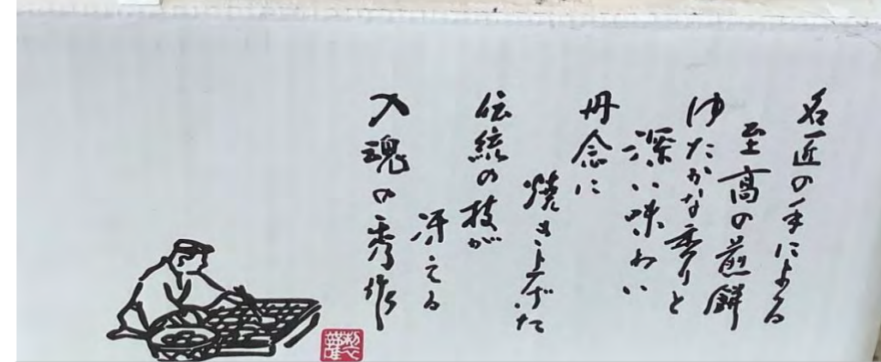 名匠の手による
至高の煎餅
ゆたかな香りと
深い味わい
丹念に
焼き上げた
伝統の技が
冴える
入魂の秀作